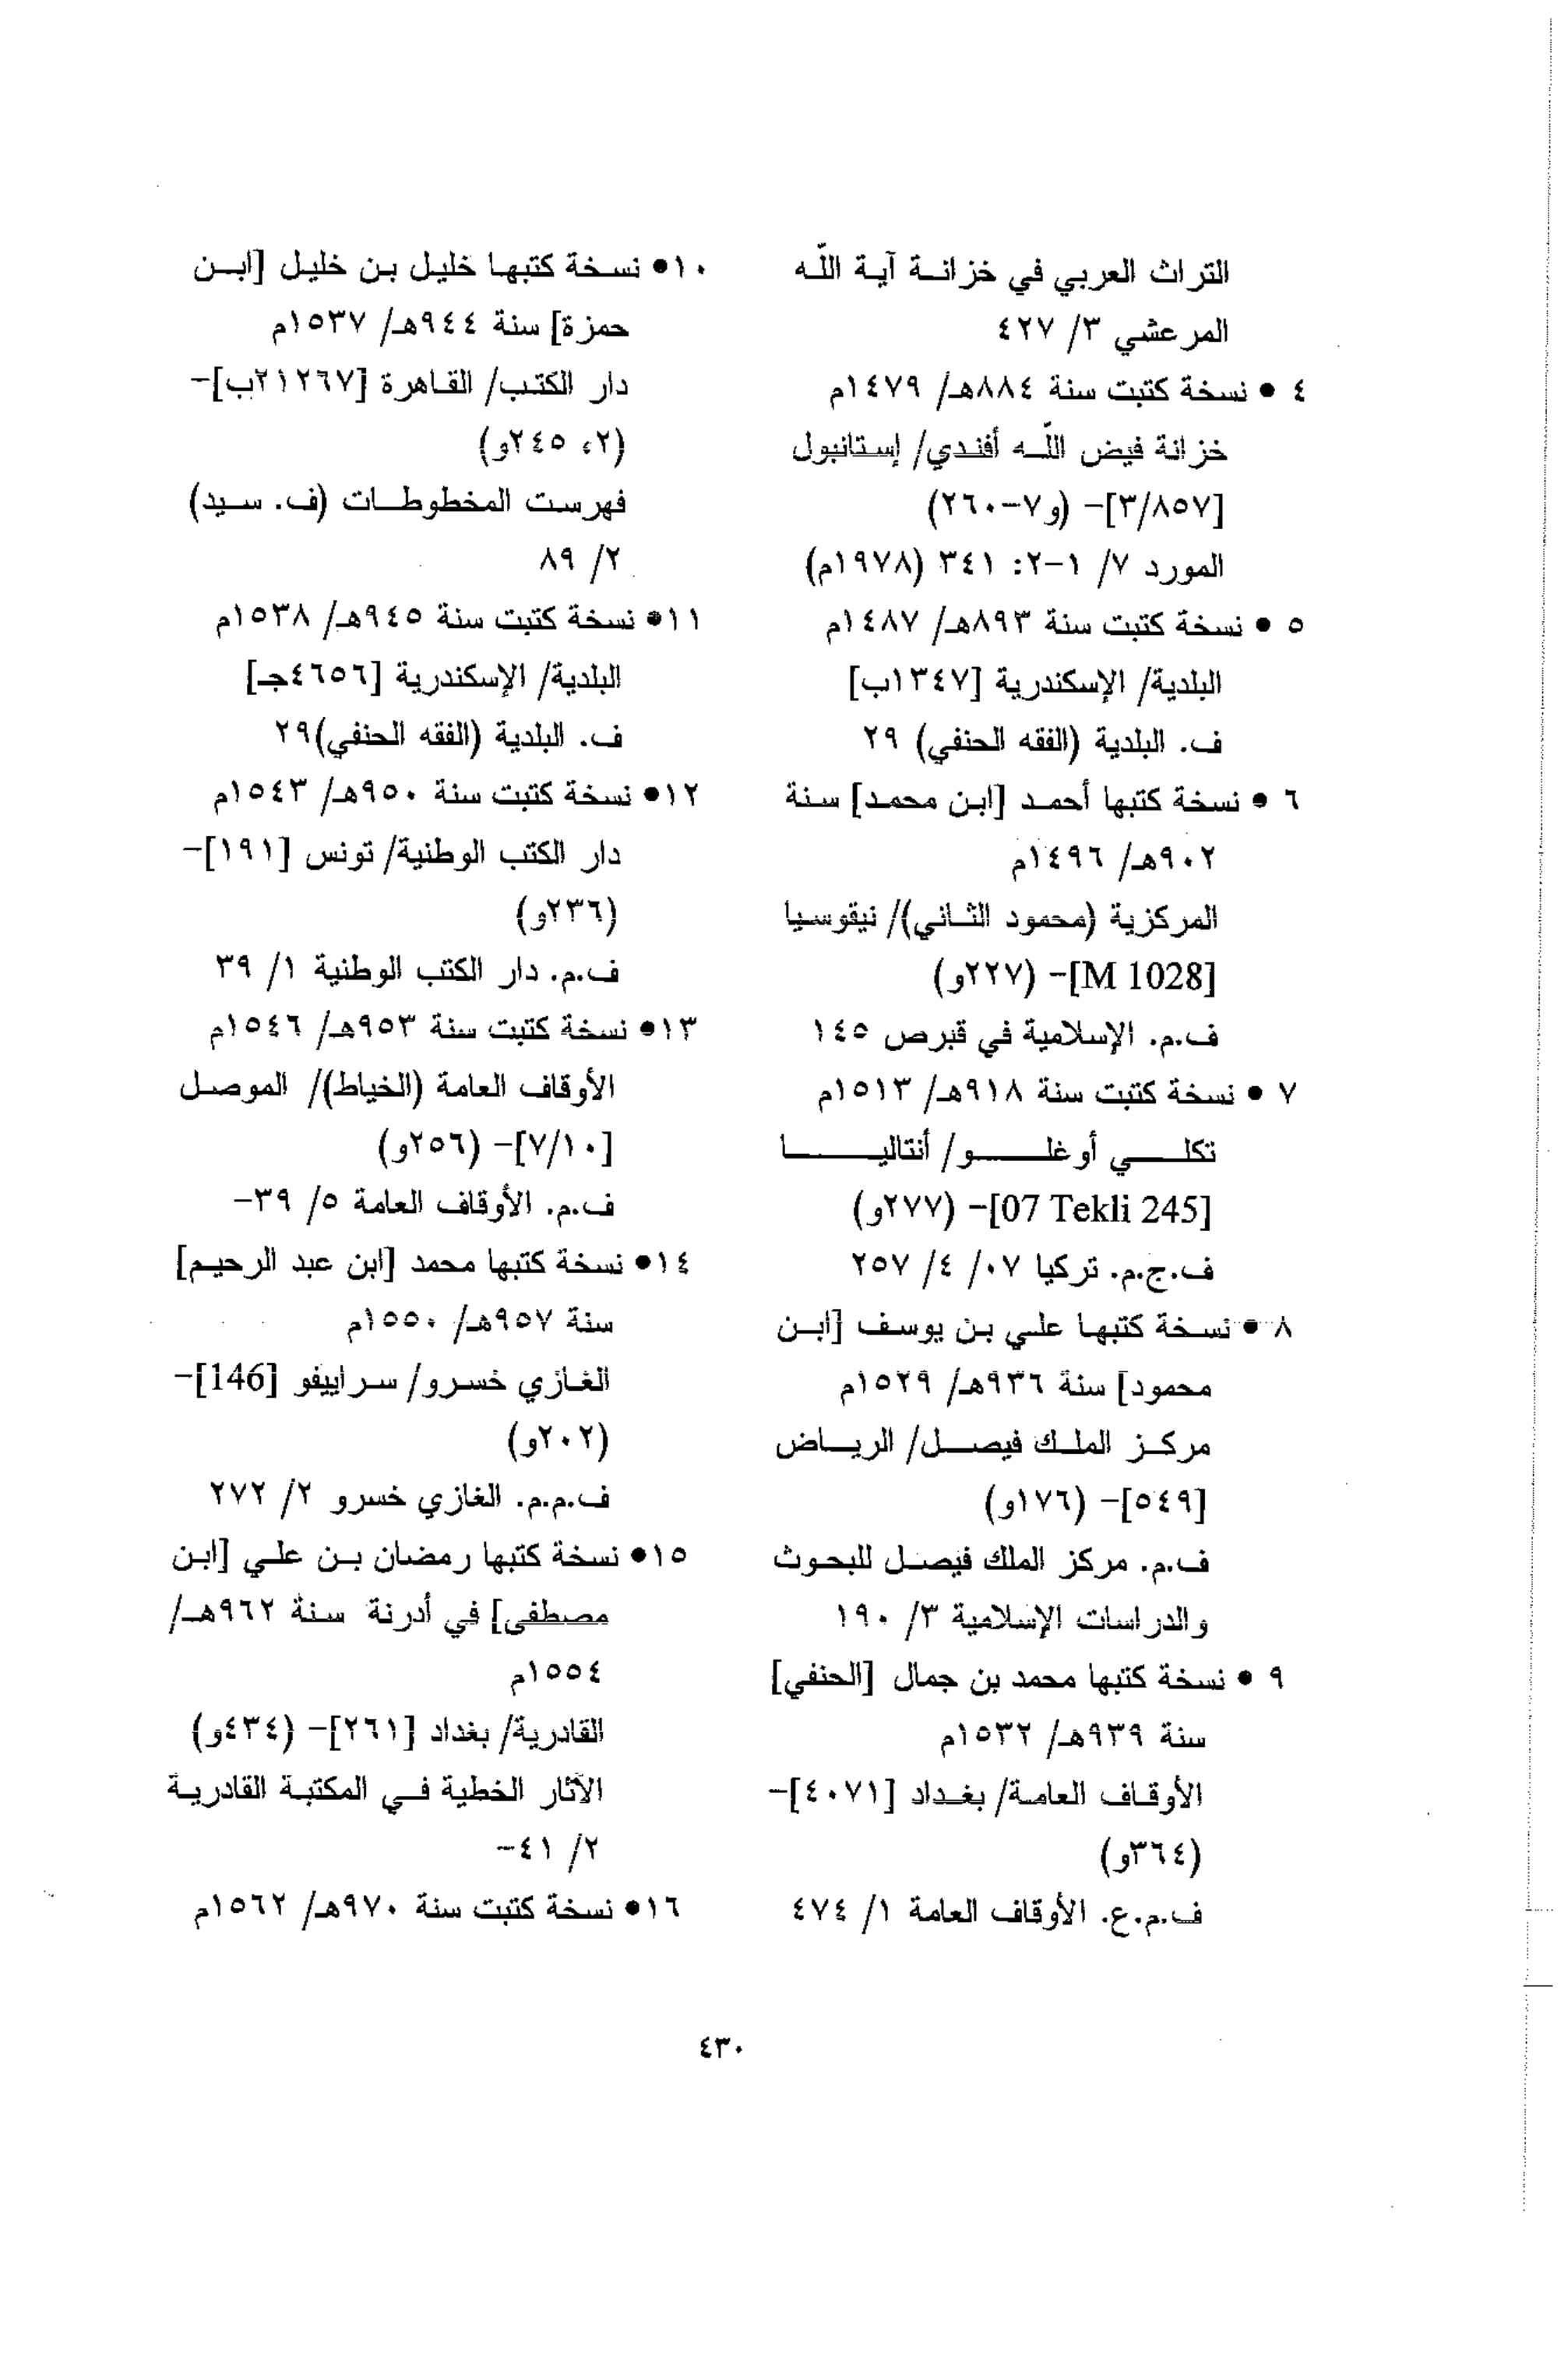 التراث العربي في خزانة آية اللّه
المرعشي ٣/ ٤٢٧
٤ • نسخة كتبت سنة ٨٨٤هـ/ ١٤٧٩م
خزانة فيض اللّه أفندي/ إستانبول
[٣/٨٥٧]- (و٧-٢٦٠)
المورد ٧/ ١-٢: ٣٤١ (١٩٧٨م)
٥ • نسخة كتبت سنة ٨٩٣هـ/ ١٤٨٧م
البلدية/ الإسكندرية [١٣٤٧ب]
ف. البلدية (الفقه الحنفي) ٢٩
٦ • نسخة كتبها أحمد [ابن محمد] سنة
٩٠٢هـ/ ١٤٩٦م
المركزية (محمود الثاني)/ نيقوسيا
[M 1028]- (٢٢٧و)
ف.م. الإسلامية في قبرص ١٤٥
٧ • نسخة كتبت سنة ٩١٨هـ/ ١٥١٣م
تكلي أوغلو/ أنتاليا
[07 Tekli 245]- (٢٧٧و)
ف.ج.م. تركيا ٠٧/ ٤/ ٢٥٧
٨ • نسخة كتبها علي بن يوسف [ابن
محمود] سنة ٩٣٦هـ/ ١٥٢٩م
مركز الملك فيصل/ الرياض
[٥٤٩]- (١٧٦و)
ف.م. مركز الملك فيصل للبحوث
والدراسات الإسلامية ٣/ ١٩٠
٩ • نسخة كتبها محمد بن جمال [الحنفي]
سنة ٩٣٩هـ/ ١٥٣٢م
الأوقاف العامة/ بغداد [٤٠٧١]-
(٣٦٤و)
ف.م.ع. الأوقاف العامة ١/ ٤٧٤
١٠• نسخة كتبها خليل بن خليل [ابن
حمزة] سنة ٩٤٤هـ/ ١٥٣٧م
دار الكتب/ القاهرة [٢١٢٦٧ب]-
(٢، ٢٤٥و)
فهرست المخطوطات (ف. سيد)
٢/ ٨٩
١١• نسخة كتبت سنة ٩٤٥هـ/ ١٥٣٨م
البلدية/ الإسكندرية [٤٦٥٦جـ]
ف. البلدية (الفقه الحنفي)٢٩
١٢• نسخة كتبت سنة ٩٥٠هـ/ ١٥٤٣م
دار الكتب الوطنية/ تونس [١٩١]-
(٢٣٦و)
ف.م. دار الكتب الوطنية ١/ ٣٩
١٣• نسخة كتبت سنة ٩٥٣هـ/ ١٥٤٦م
الأوقاف العامة (الخياط)/ الموصل
[٧/١٠]- (٢٥٦و)
ف.م. الأوقاف العامة ٥/ ٣٩-
١٤• نسخة كتبها محمد [ابن عبد الرحيم]
سنة ٩٥٧هـ/ ١٥٥٠م
الغازي خسرو/ سراييفو [146]-
(٢٠٢و)
ف.م.م. الغازي خسرو ٢/ ٢٧٢
١٥• نسخة كتبها رمضان بن علي [ابن
مصطفى] في أدرنة سنة ٩٦٢هـ/
١٥٥٤م
القادرية/ بغداد [٢٦١]- (٤٣٤و)
الآثار الخطية في المكتبة القادرية
٢/ ٤١-
١٦• نسخة كتبت سنة ٩٧٠هـ/ ١٥٦٢م
٤٣٠